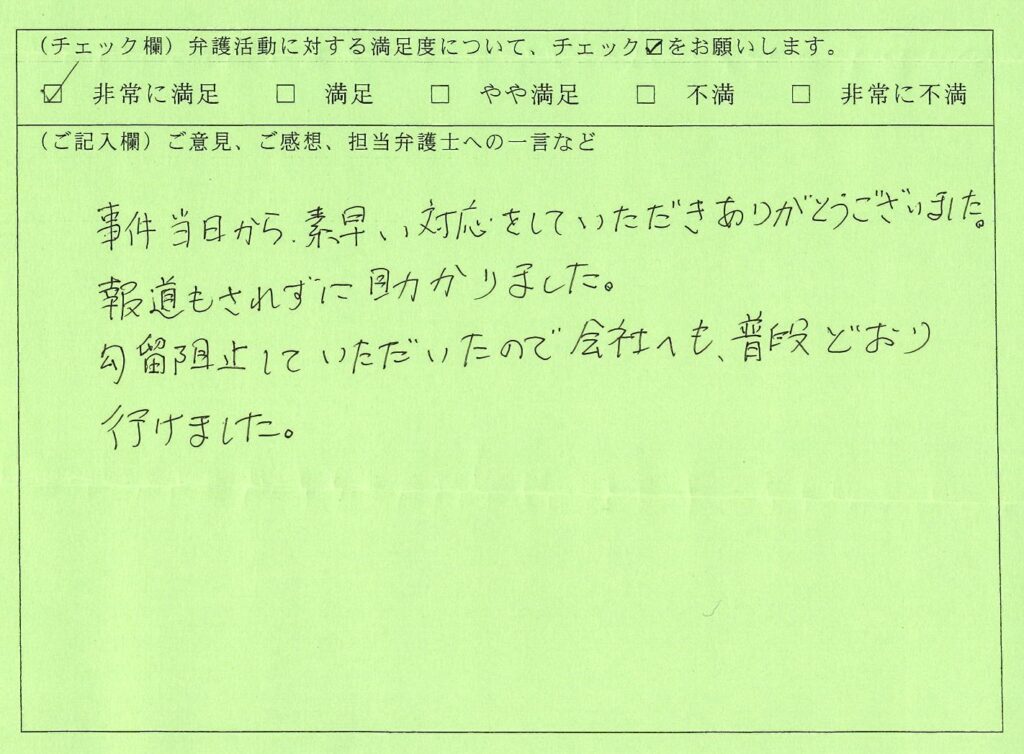 (チェック欄)弁護活動に対する満足度について、チェック☑をお願いします。
☑ 非常に満足 □ 満足 □ やや満足 □ 不満 □ 非常に不満
(ご記入欄)ご意見、ご感想、担当弁護士への一言など
事件当日から、素早い対応をしていただきありがとうございました。
報道もされずに助かりました。
勾留阻止していただいたので会社へも、普段どおり
行けました。